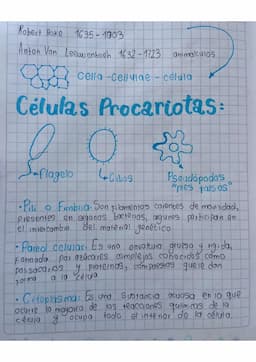 Robert Hoke 1635-1703
Anton Van Leeuwenhoek 1632-1723 animalculos
Cella-Cellulae-célula
Células Procariotas:
Flagelo
Cilios
Pseudópodos
"pies falsos"
• Pili o Fimbria: Son filamentos carentes de movilidad,
presentes en algunas bacterias, algunos participan en
el intercambio del material genético
• Pared celular: Es una envoltura gruesa y rígida,
formada por azúcares complejos conocidos como
polisacáridos y proteínas, compuestos que le dan
forma a la célula
• Citoplasma: Es una sustancia acuosa en lo que
ocurre la mayoría de las reacciones químicas de la
célula y ocupa todo el interior de la célula.